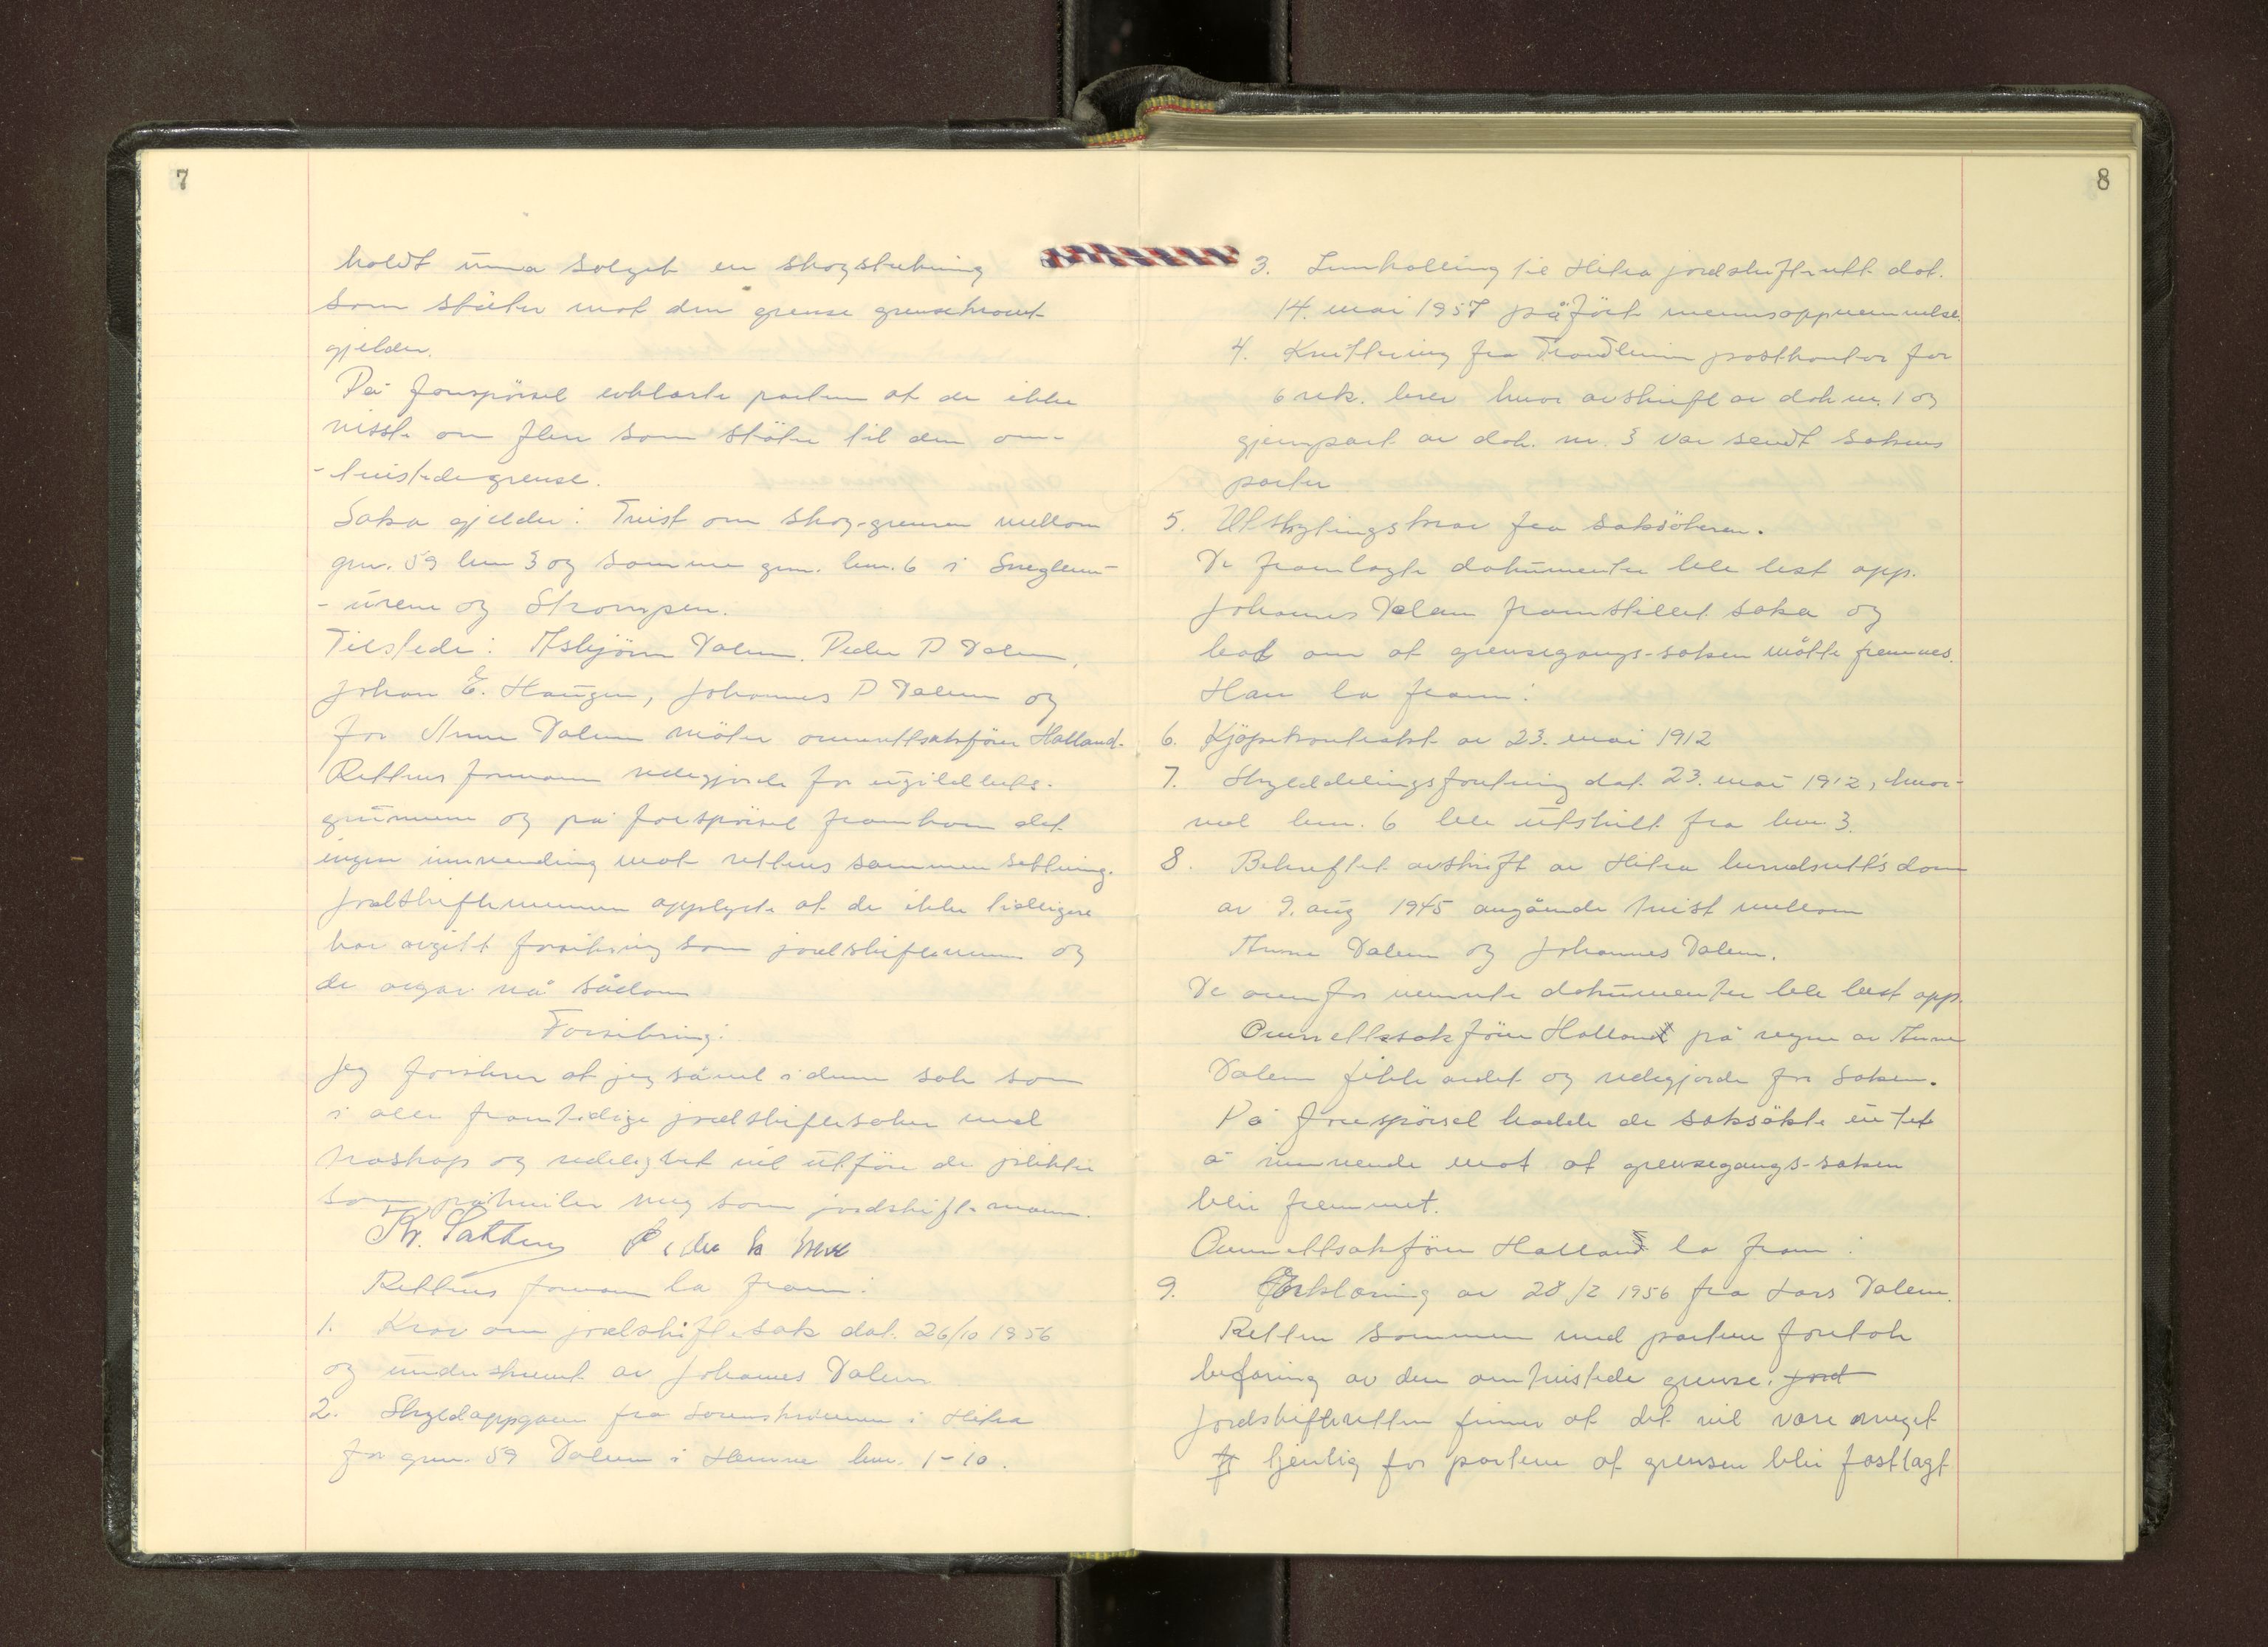 7
holdt unna salget en skogstrekning
som støter mot den grense grensekravet
gjelder.
På forespørsel erklærte partene at de ikke
visste om flere som støter til den om-
-tvistede grense.
Saka gjelder: Tvist om skog-grensen mellom
gnr. 59 bnr 3 og samme gnr. bnr. 6 i
-urene og Strompen.
Tilstede: Asbjörn Dalum. Peder P Dalum,
Johan E. Haugen, Johannes P Dalum og
for Anne Dalum möter overrettsakförer Halland.
Rettens formann redegjorde for ugildhets-
grunnene og på forespörsel framkom det
ingen innvending mot rettens sammensetning.
Jordskiftemennene opplyste at de ikke tidligere
har avgitt forsikring som jordskiftemenn og
de avgav nå sådan
Forsikring:
Jeg forsikrer at jeg såvel i denne sak som
i alle framtidige jordskiftesaker med
troskap og redelighet vil utföre de plikter
som påhviler meg som jordskiftemann.
Peder
Rettens formann la fram:
1. Krav om jordskiftesak dat. 26/10 1956
og underskrevet av Johannes Dalum
2. Skyldoppgaven fra sorenskriveren i Hitra
for gnr. 59 Dalum i Hemne bnr. 1-10.
8
3. Innkalling til Hitra jordskifterett dat.
14. mai 1957 påfört mennsoppnevnelse.
4. Kvittering fra Trondheim postkontor for
6 rek. brev hvor avskrift av dok nr. 1 og
gjenpart av dok. nr. 3 var sendt sakens
parter
5. Utskyldingskrav fra saksökeren.
De framlagte dokumenter ble lest opp.
Johannes Dalum framstillet saka og
bad om at grensegangs-saken måtte fremmes.
Han la fram:
6. Kjöpekontrakt av 23. mai 1912
7. Skylddelingsforretning dat. 23. mai 1912, hvor-
ved bnr. 6 ble utskilt fra bnr. 3.
8. Bekreftet avskrift av Hitra herredsrett's dom
av 9. aug 1945 angående tvist mellom
Anne Dalum og Johannes Dalum.
De ovenfor nevnte dokumenter ble lest opp.
Overrettssakförer Halland på vegne av Anne
Dalum fikk ordet og redegjorde for saken.
På forespörsel hadde de saksökte intet
å innvende mot at grensegangs-saken
blir fremmet.
Overrettsakförer Halland la fram:
9. Erklæring av 28/2 1956 fra Lars Dalum.
Retten sammen med partene foretok
befaring av den omtvistede grense. jord
Jordskifteretten finner at det vil være meget
tjenlig for partene at grensen blir fastlagt